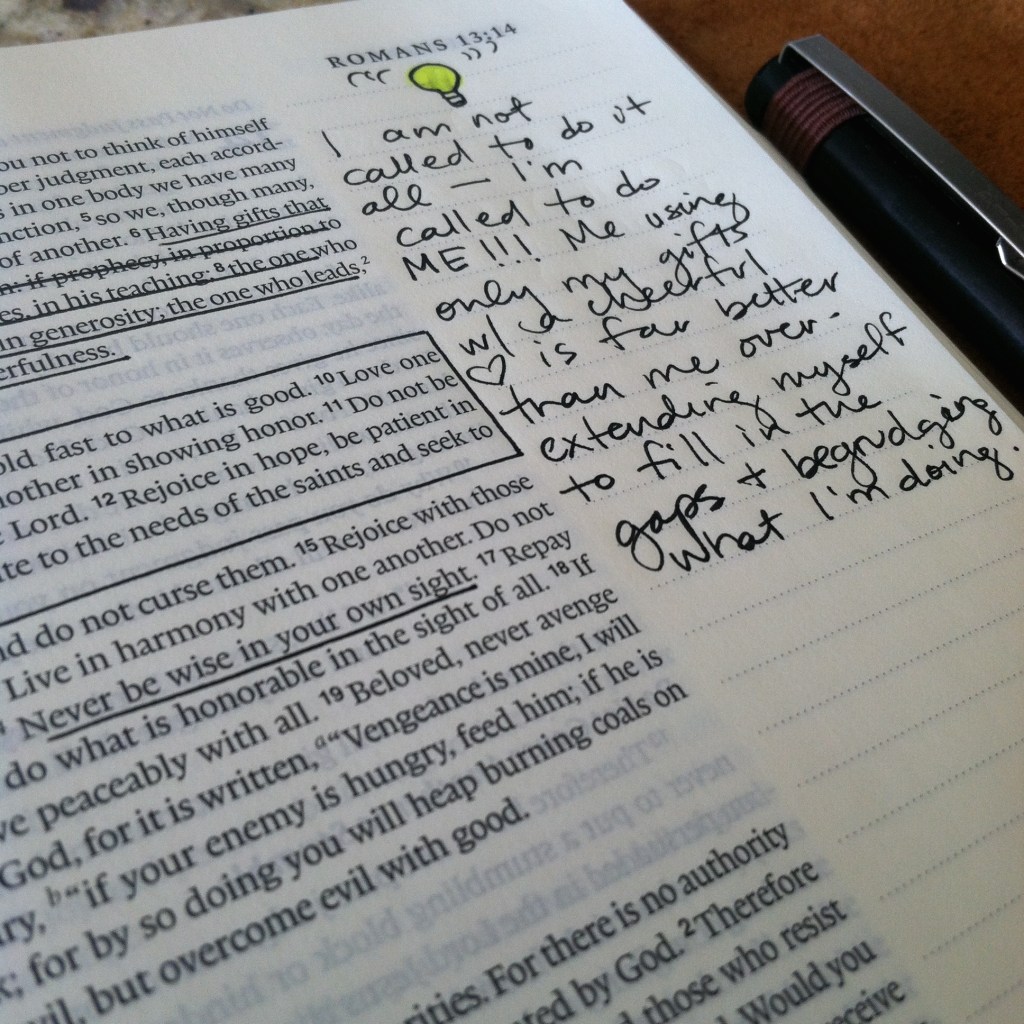 ROMANS 13:14
I am not
called to do it
all — I'm
called to do
ME!!! Me using
only my gifts
w/ a cheerful
♡ is far better
than me over-
extending myself
to fill in the
gaps + begrudging
what I'm doing.
ou not to think of himself
ber judgment, each accord-
s in one body we have many
nction, 5 so we, though many,
of another. 6 Having gifts that
n: if prophecy, in proportion to
es, in his teaching; 8 the one who
in generosity; the one who leads,2
erfulness.
old fast to what is good. 10 Love one
nother in showing honor. 11 Do not be
e Lord. 12 Rejoice in hope, be patient in
ute to the needs of the saints and seek to
nd do not curse them. 15 Rejoice with those
Live in harmony with one another. Do not
Never be wise in your own sight. 17 Repay
do what is honorable in the sight of all. 18 If
ve peaceably with all. 19 Beloved, never avenge
God, for it is written, a“Vengeance is mine, I will
ry, b“if your enemy is hungry, feed him; if he is
k; for by so doing you will heap burning coals on
vil, but overcome evil with good.
rities. For there is no authority
ted by God. 2 Therefore
those who resist
Would you
receive